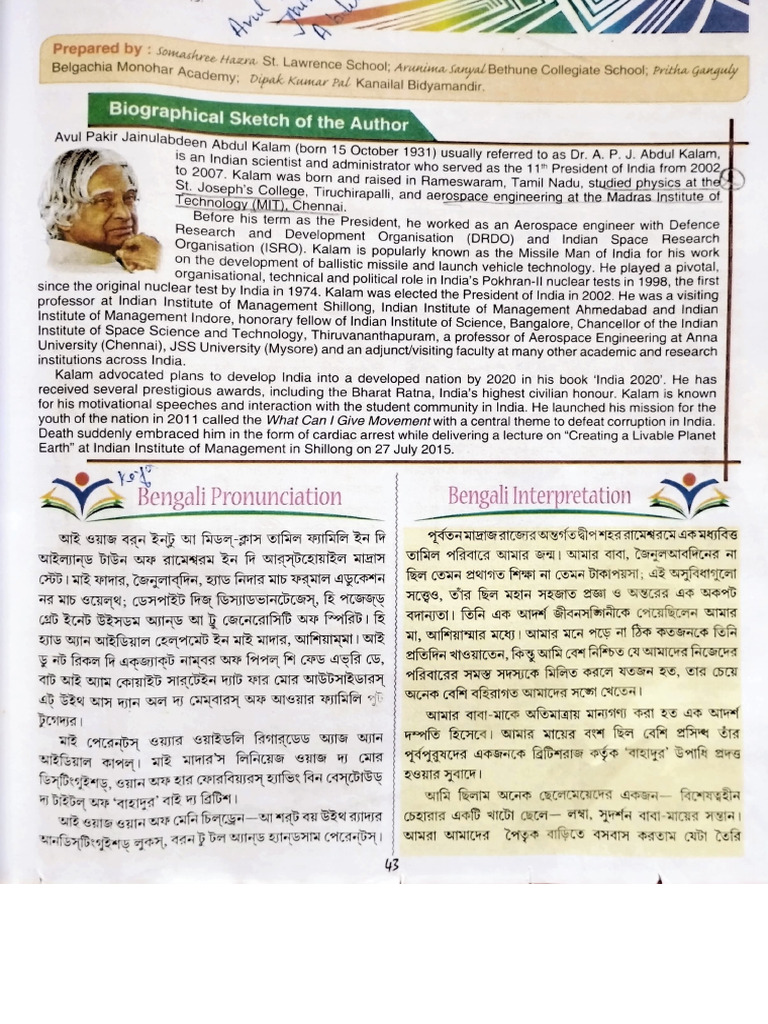 Avul
Prepared by : Somashree Hazra St. Lawrence School; Arunima Sanyal Bethune Collegiate School; Pritha Ganguly
Belgachia Monohar Academy; Dipak Kumar Pal Kanailal Bidyamandir.
Biographical Sketch of the Author
Avul Pakir Jainulabdeen Abdul Kalam (born 15 October 1931) usually referred to as Dr. A. P. J. Abdul Kalam,
is an Indian scientist and administrator who served as the 11th President of India from 2002
to 2007. Kalam was born and raised in Rameswaram, Tamil Nadu, studied physics at the
St. Joseph's College, Tiruchirapalli, and aerospace engineering at the Madras Institute of
Technology (MIT), Chennai.
Before his term as the President, he worked as an Aerospace engineer with Defence
Research and Development Organisation (DRDO) and Indian Space Research
Organisation (ISRO). Kalam is popularly known as the Missile Man of India for his work
on the development of ballistic missile and launch vehicle technology. He played a pivotal,
organisational, technical and political role in India's Pokhran-II nuclear tests in 1998, the first
since the original nuclear test by India in 1974. Kalam was elected the President of India in 2002. He was a visiting
professor at Indian Institute of Management Shillong, Indian Institute of Management Ahmedabad and Indian
Institute of Management Indore, honorary fellow of Indian Institute of Science, Bangalore, Chancellor of the Indian
Institute of Space Science and Technology, Thiruvananthapuram, a professor of Aerospace Engineering at Anna
University (Chennai), JSS University (Mysore) and an adjunct/visiting faculty at many other academic and research
institutions across India.
Kalam advocated plans to develop India into a developed nation by 2020 in his book 'India 2020'. He has
received several prestigious awards, including the Bharat Ratna, India's highest civilian honour. Kalam is known
for his motivational speeches and interaction with the student community in India. He launched his mission for the
youth of the nation in 2011 called the What Can I Give Movement with a central theme to defeat corruption in India.
Death suddenly embraced him in the form of cardiac arrest while delivering a lecture on "Creating a Livable Planet
Earth" at Indian Institute of Management in Shillong on 27 July 2015.
Bengali Pronunciation
আই ওয়াজ বর্‌ন ইন্‌টু আ মিডল্‌-ক্লাস তামিল ফ্যামিলি ইন দি
আইল্যান্‌ড টাউন অফ রামেশ্বরম ইন দি আর্‌স্টহোয়াইল মাদ্রাস
স্টেট। মাই ফাদার, জৈনুলাব্‌দিন, হ্যাড নিদার মাচ ফর্‌মাল এডুকেশন
নর মাচ ওয়েল্‌থ; ডেসপাইট দিজ্‌ ডিস্যাডভানটেজেস্‌, হি পজেজ্‌ড্‌
গ্রেট ইনেট উইসডম অ্যান্‌ড আ ট্রু জেনেরোসিটি অফ স্পিরিট। হি
হ্যাড অ্যান আইডিয়াল হেল্‌পমেট ইন মাই মাদার, আশিয়াম্মা। আই
ডু নট রিকল দি এক্‌জ্যাক্ট নাম্‌বর অফ পিপল্‌ শি ফেড এভ্‌রি ডে,
বাট আই অ্যাম কোয়াইট সার্‌টেইন দ্যাট ফার মোর আউটসাইডারস্‌
এট্‌ উইথ আস দ্যান অল দ্য মেম্‌বারস্‌ অফ আওয়ার ফ্যামিলি পুট
টুগেদ্যর।
মাই পেরেন্‌টস্‌ ওয়্যার ওয়াইডলি রিগার্‌ডেড অ্যাজ অ্যান
আইডিয়াল কাপল্‌। মাই মাদার'স লিনিয়েজ ওয়াজ দ্য মোর
ডিস্‌টিংগুইশড্‌, ওয়ান অফ হার ফোরবিয়্যরস্‌ হ্যাভিং বিন বেস্‌টোউড্‌
দ্য টাইট্‌ল অফ 'বাহাদুর' বাই দ্য ব্রিটিশ।
আই ওয়াজ ওয়ান অফ মেনি চিল্‌ড্রেন—আ শর্‌ট বয় উইথ র‍্যাদ্যর
আনডিস্‌টিংগুইশড্‌ লুকস্‌, বরন টু টল অ্যান্‌ড হ্যান্‌ডসাম পেরেন্‌টস্‌।
Bengali Interpretation
পূর্বতন মাদ্রাজ রাজ্যের অন্তর্গত দ্বীপ শহর রামেশ্বরমে এক মধ্যবিত্ত
তামিল পরিবারে আমার জন্ম। আমার বাবা, জৈনুলআবদিনের না
ছিল তেমন প্রথাগত শিক্ষা না তেমন টাকাপয়সা; এই অসুবিধাগুলো
সত্ত্বেও, তাঁর ছিল মহান সহজাত প্রজ্ঞা ও অন্তরের এক অকপট
বদান্যতা। তিনি এক আদর্শ জীবনসঙ্গিনীকে পেয়েছিলেন আমার
মা, আশিয়াম্মার মধ্যে। আমার মনে পড়ে না ঠিক কতজনকে তিনি
প্রতিদিন খাওয়াতেন, কিন্তু আমি বেশ নিশ্চিত যে আমাদের নিজেদের
পরিবারের সমস্ত সদস্যকে মিলিত করলে যতজন হত, তার চেয়ে
অনেক বেশি বহিরাগত আমাদের সঙ্গে খেতেন।
আমার বাবা-মাকে অতিমাত্রায় মান্যগণ্য করা হত এক আদর্শ
দম্পতি হিসেবে। আমার মায়ের বংশ ছিল বেশি প্রসিদ্ধ তাঁর
পূর্বপুরুষদের একজনকে ব্রিটিশরাজ কর্তৃক 'বাহাদুর' উপাধি প্রদত্ত
হওয়ার সুবাদে।
আমি ছিলাম অনেক ছেলেমেয়েদের একজন— বিশেষত্বহীন
চেহারার একটি খাটো ছেলে— লম্বা, সুদর্শন বাবা-মায়ের সন্তান।
আমরা আমাদের পৈতৃক বাড়িতে বসবাস করতাম যেটা তৈরি
43